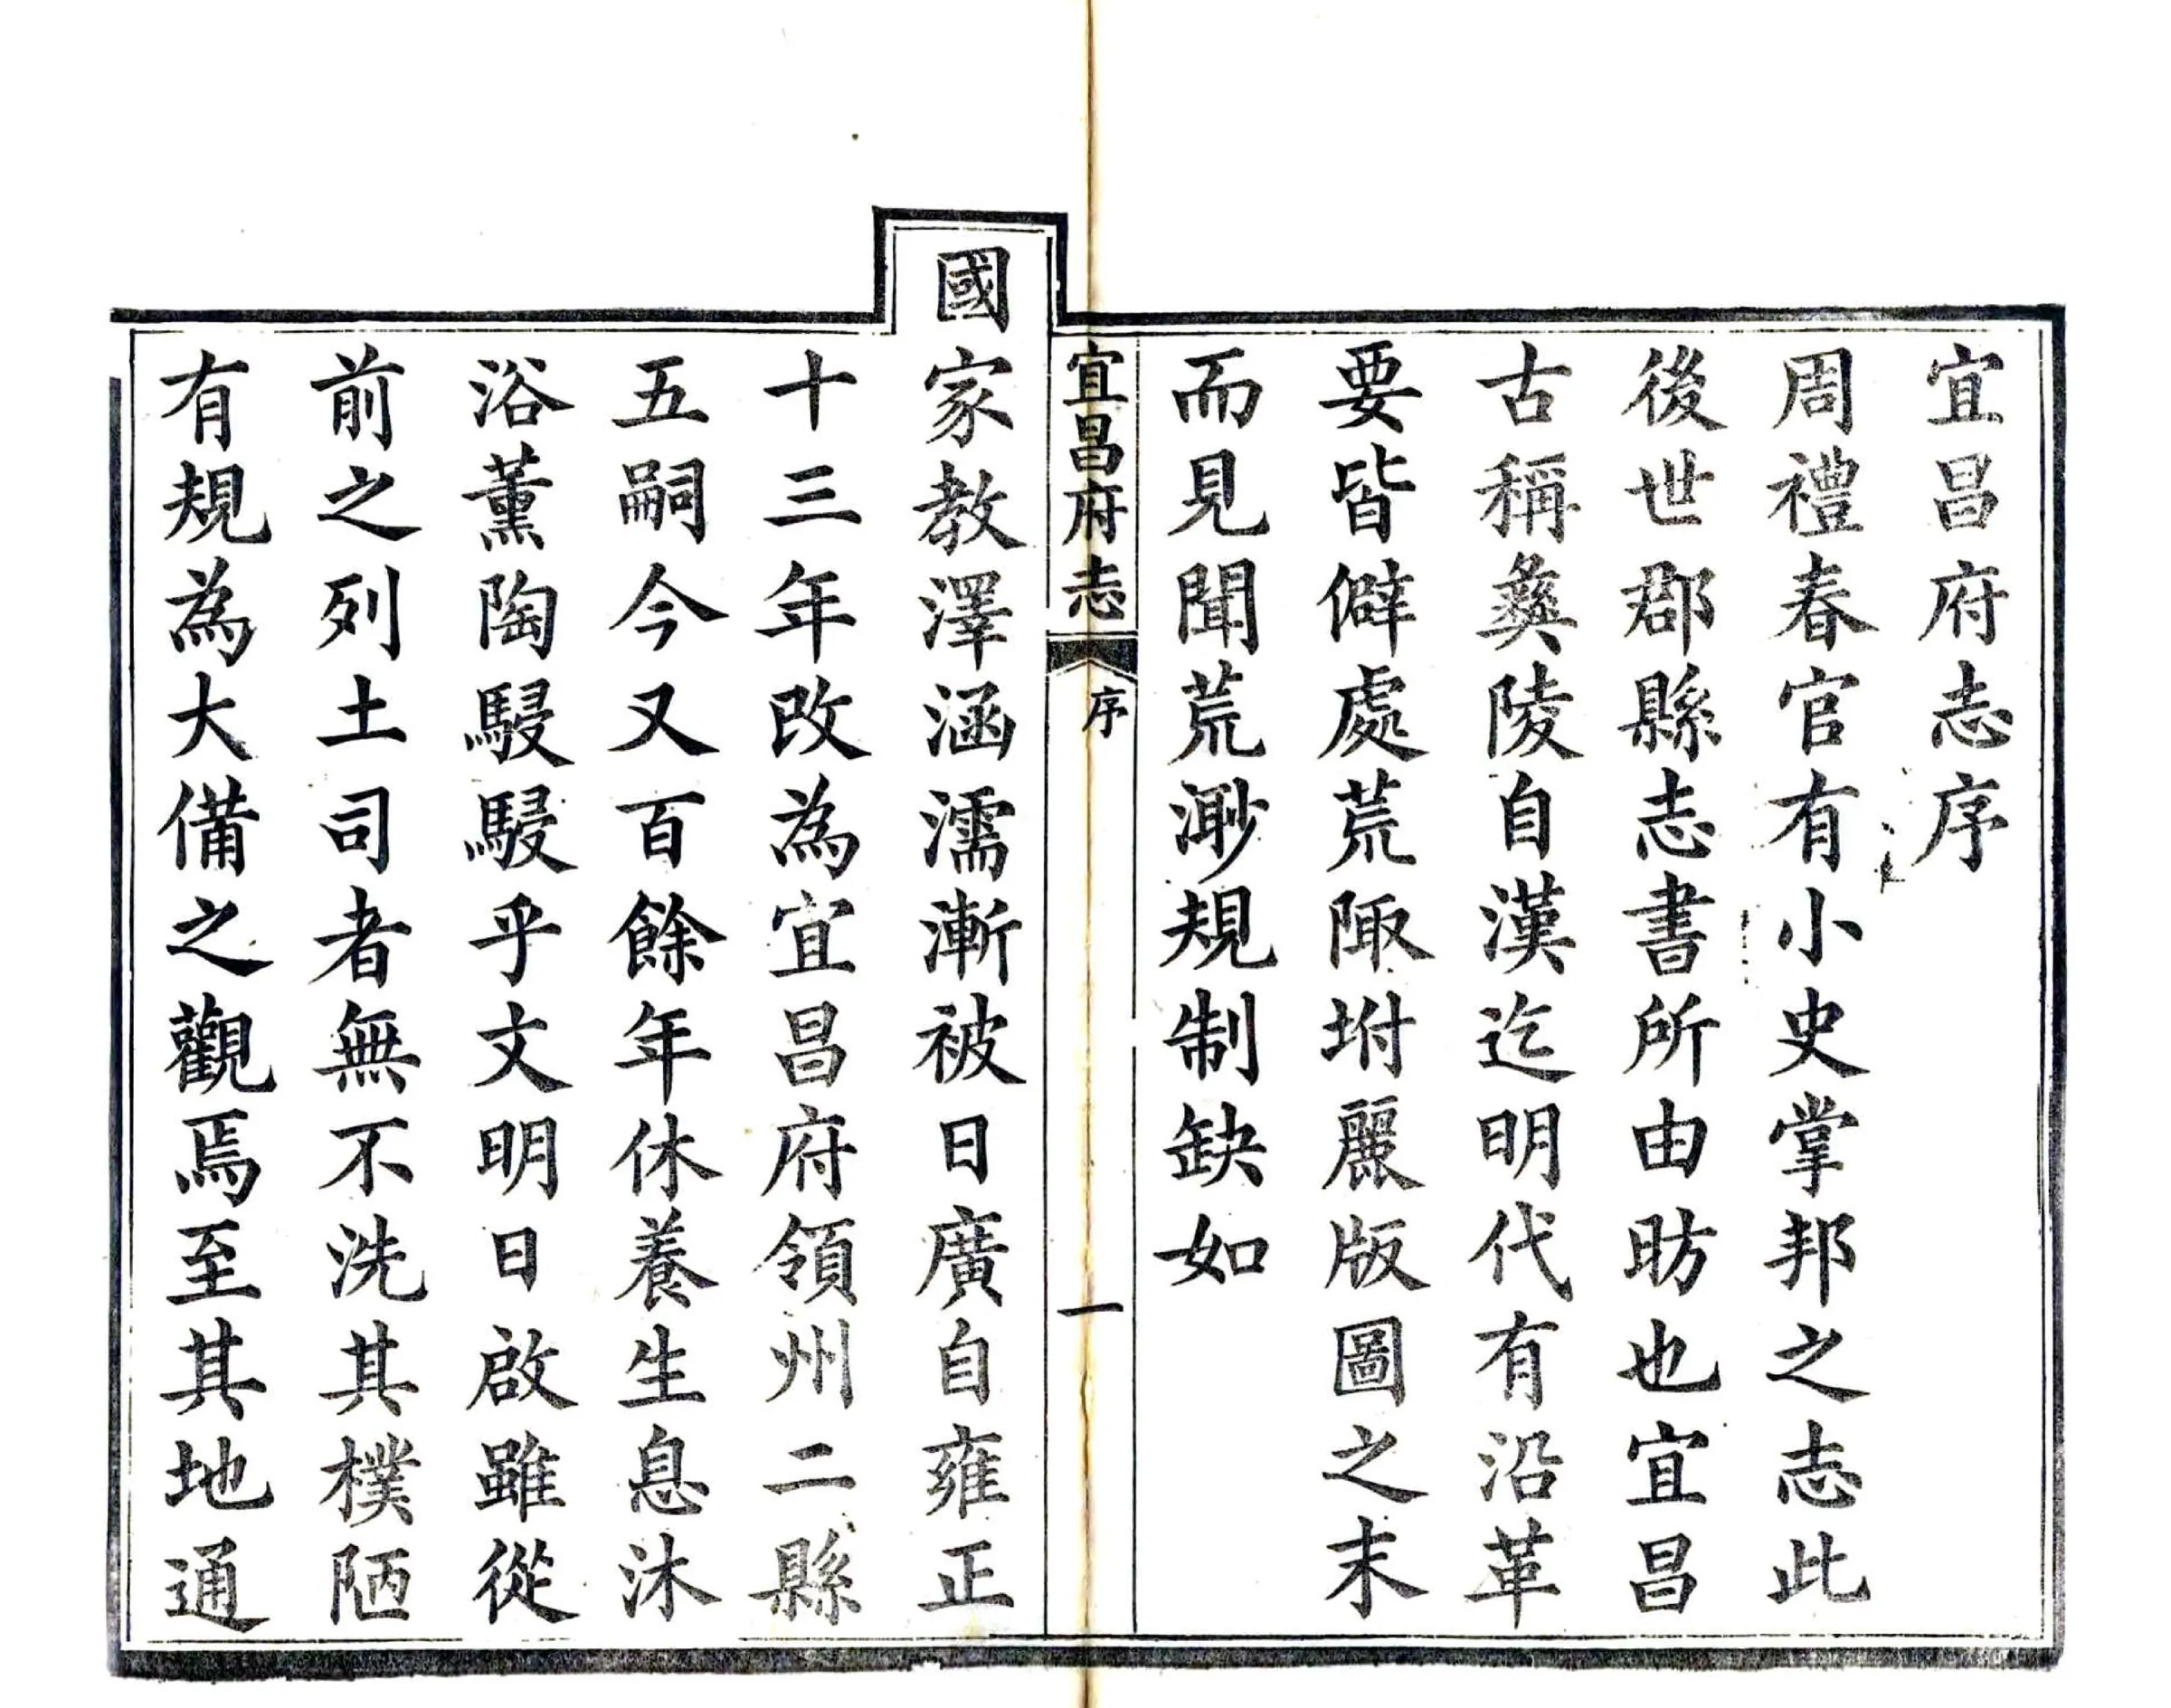 宜昌府志序
周禮春官有小史掌邦之志此
後世郡縣志書所由昉也宜昌
古稱彝陵自漢迄明代有沿革
要皆僻處荒陬坿麗版圖之末
而見聞荒渺規制缺如
宜昌府志
序
一
國家教澤涵濡漸被日廣自雍正
十三年改為宜昌府領州二縣
五嗣今又百餘年休養生息沐
浴薰陶駸駸乎文明日啟雖從
前之列土司者無不洗其樸陋
有規為大備之觀焉至其地通